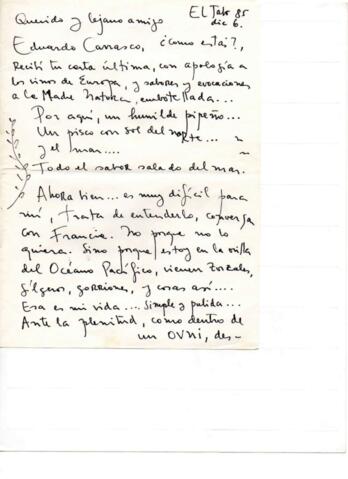 El Tabo 85
dic 6.
Querido y lejano amigo
Eduardo Carrasco, ¿como está?,
Recibí tu carta última, con apología a
los vinos de Europa, y sabores y evocaciones
a la Madre Natura, embotellada...
Por aquí, un humilde pipeño...
Un pisco con sol del norte...
y el mar....
Todo el sabor salado del mar.
Ahora bien... es muy difícil para
mí, trata de entenderlo, conversa
con Francia. No porque no lo
quiera. Sino porque estoy en la orilla
del Océano Pacífico, vienen zorzales,
jilgueros, gorriones, y cosas así....
Esa es mi vida.... Simple y pulida...
Ante la plenitud, como dentro de
un OVNI, des-